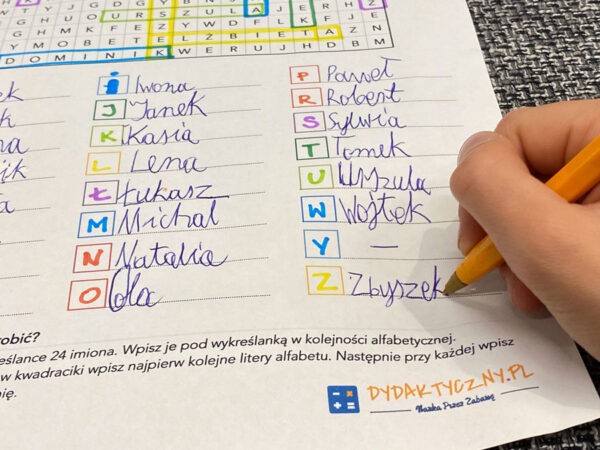 G H J U O U R S Z U L A J E R Z
G H M K F E Z Y W D F L K F Z E
Y M O B E T E L Ż B I E T A Z N
D O M I N I K W E R U J H D B M
I Iwona
J Janek
K Kasia
L Lena
Ł Łukasz
M Michał
N Natalia
O Ola
P Paweł
R Robert
S Sylwia
T Tomek
U Urszula
W Wojtek
Y —
Z Zbyszek
24 imiona. Wpisz je pod wykreślanką w kolejności alfabetycznej.
w kwadraciki wpisz najpierw kolejne litery alfabetu. Następnie przy każdej wpisz
DYDAKTYCZNY.PL
Nauka Przez Zabawę